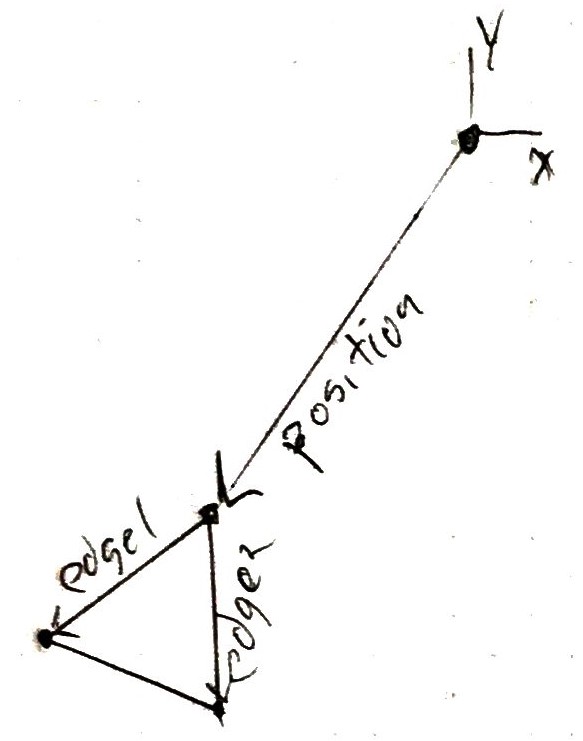 Y
X
Position
edge1
edge2